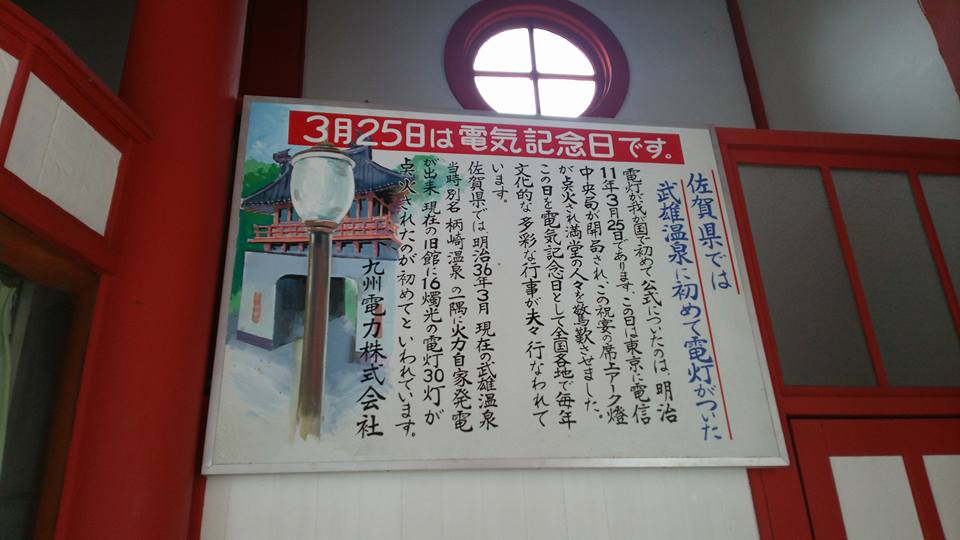 3月25日は電気記念日です。
佐賀県では
武雄温泉に初めて電灯がついた
電灯が我が国で初めて公式についたのは、明治
11年3月25日であります。この日は東京に電信
中央局が開局され、この祝宴の席上アーク燈
が点火され満堂の人々を驚歎させました。
この日を電気記念日として全国各地で毎年
文化的な多彩な行事が夫々行なわれて
います。
佐賀県では明治36年3月現在の武雄温泉
当時別名柄崎温泉の一隅に火力自家発電
が出来現在の旧館に16燭光の電灯30灯が
点火されたのが初めてといわれています。
九州電力株式会社